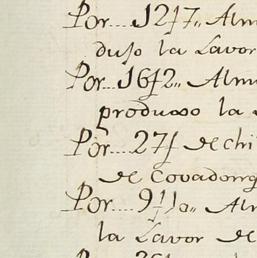 Por.... 1217,, Alm
dujo la Lavor
Por... 1612,, Alm
produxo la
Por.... 27 de chi
de Covadong
Por.... Al
la Lavor de
Por....